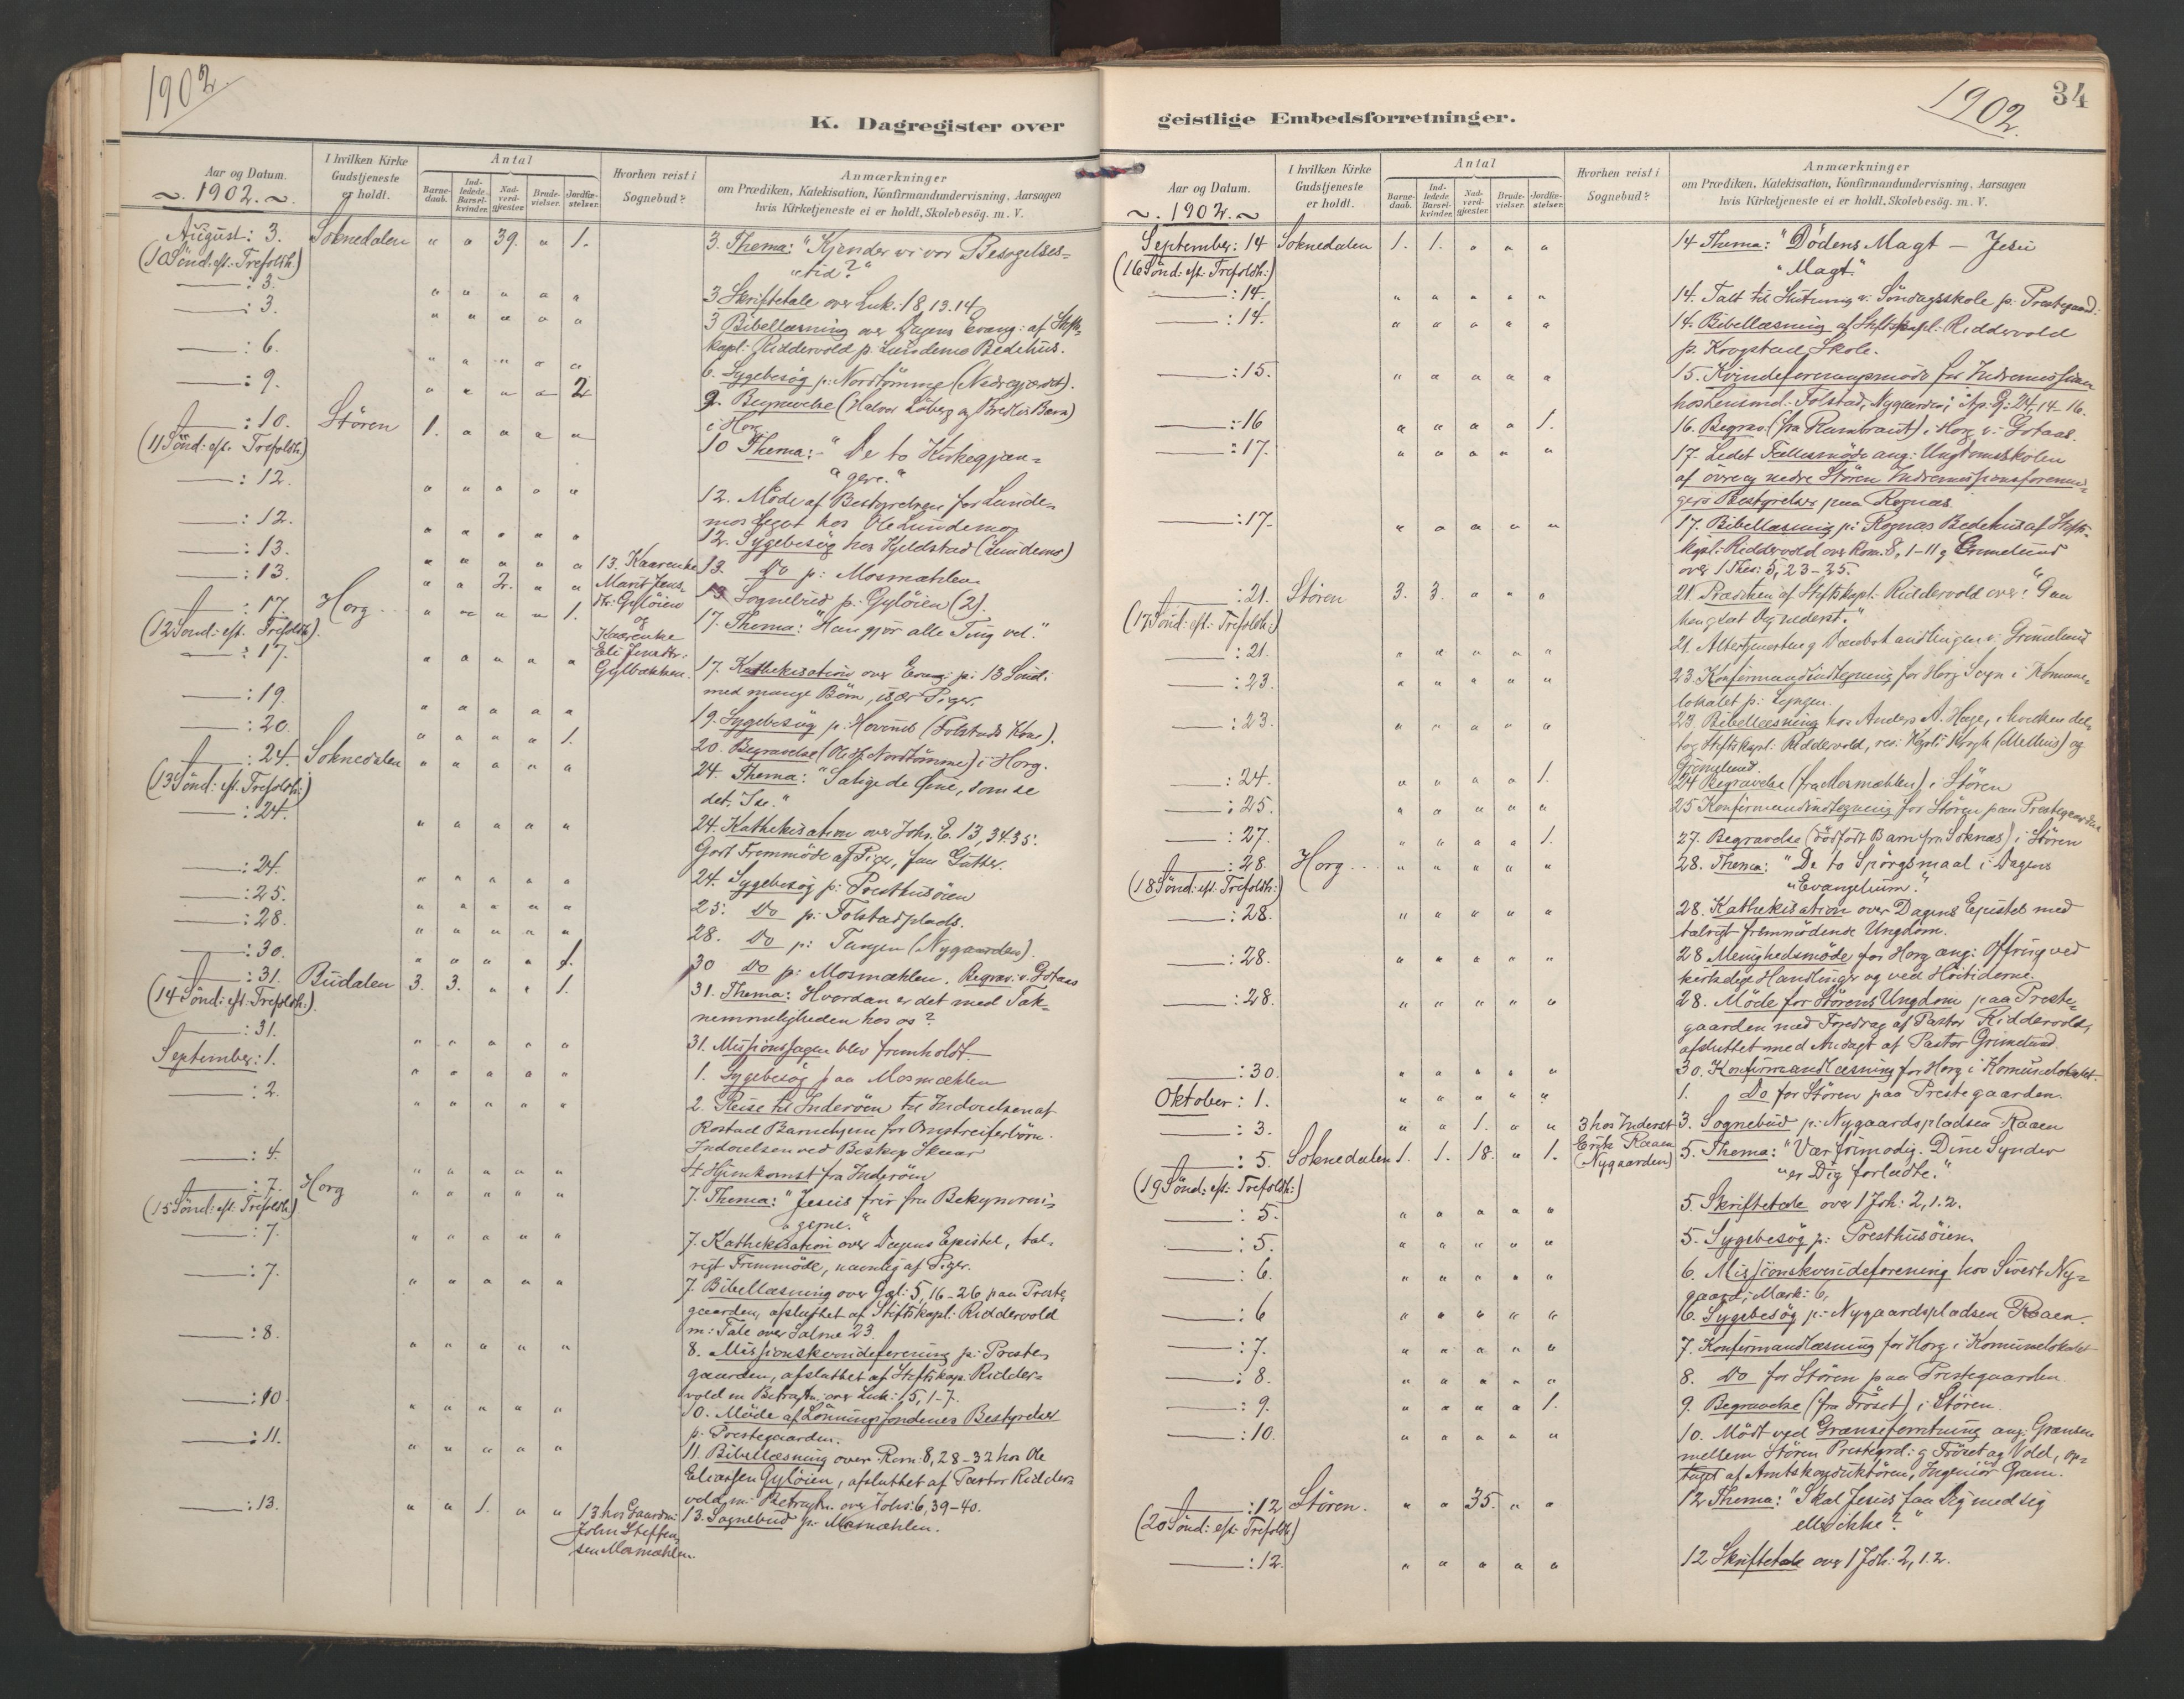 1902
K. Dagregister over
Aar og Datum.
~ 1902. ~
I hvilken Kirke
Gudstjeneste
er holdt.
Antal
Barne-
daab.
Ind-
ledede
Barsel-
kvinder.
Nad-
verd-
gjæster.
Brude-
vielser.
Jordfæ-
stelser.
Hvorhen reist i
Sognebud?
Anmærkninger
om Prædiken, Katekisation, Konfirmandundervisning, Aarsagen
hvis Kirketjeneste ei er holdt, Skolebesög. m. V.
August: 3. Soknedalen " " 39. " 1. 3. Thema: "Kjender vi vor Besøgelses=
(10 Sönd: eft: Trefoldh:) "tid?"
: 3. " " " " " 3 Skriftetale over Luk. 18, 13.14.
: 3. " " " " " 3 Bibellæsning over Dagens Evang: af Stifts-
kapl: Riddervold p. Lundemo Bedehus.
: 6. " " " " " 6. Sygebesög p: Nordtömme (Nedregjærdet).
: 9. " " " " 2 9. Begravelse (Halvor Løberg og Bredlis Barn)
i Horg.
: 10. Stören 1. " " " " 10 Thema: "De to Kirkegjæn=
(11 Sönd: eft. Trefoldh:) "gere."
: 12. " " " " " 12. Möde af Bestyrelsen for Lunde-
mos Legat hos Ole Lundemo
: 12. " " " " " 12. Sygebesög hos Kjeldstad (Lundemo)
: 13. " " " " " 13. Kaarenke 13. Do p: Mosmæhlen
: 13. " " 2. " " Marit Jens- 13 Sognebud p: Gylöien (2).
dtr: Gylöien
: 17. Horg " " " " 1. og 17. Thema: "Han gjör alle Ting vel."
(12 Sönd: eft. Trefoldh:) Kaarenke
: 17. " " " " " Eli Jensdtr: 17. Kathekisation over Evang: p: 13 Sönd:
Gylbakken. med mange Börn, især Piger.
: 19. " " " " " 19. Sygebesög p: Hovind (Folstads Kone).
: 20. " " " " 1. 20. Begravelse (Ole Nordtömme) i Horg.
: 24. Soknedalen " " " " " 24. Thema: "Salige de Öine, som se
(13 Sönd: eft. Trefoldh:) det, I se."
: 24. " " " " " 24. Kathekisation over Joh. E. 13, 34.35:
Godt Fremmöde af Piger, faa Gutter.
: 24. " " " " " 24. Sygebesög p: Presthusöien
: 25. " " " " " 25: Do p: Folstadplads.
: 28. " " " " " 28. Do p: Tangen (Nygaarden)
: 30. " " " " 1. 30 Do p: Mosmæhlen. Begrav: v: Gotaas
: 31. Budalen 3. 3. " " 1. 31. Thema: Hvordan er det med Tak-
(14 Sönd: eft. Trefoldh:) nemmeligheden hos os?
: 31. " " " " " 31. Missionssagen blev fremholdt.
September: 1. " " " " " 1. Sygebesög paa Mosmæhlen
: 2. " " " " " 2. Reise til Inderöen til Indvielsen af
Rostad Barnehjem for Omstreiferbörn.
Indvielsen ved Biskop Skaar
: 4. " " " " " 4 Hjemkomst fra Inderöen
: 7. Horg " " " " " 7. Thema: "Jesus frir fra Bekymrin-
(15 Sönd: eft: Trefoldh:) "gerne."
: 7. " " " " " 7. Kathekisation over Dagens Epistel, tal-
rigt Fremmöde, navnlig af Piger.
: 7. " " " " " 7. Bibellæsning over Gal: 5, 16-26 paa Preste-
gaarden, afsluttet af Stiftskapl: Riddervold
m: Tale over Salme 23.
: 8. " " " " " 8. Missionskvindeforening p: Preste-
gaarden, afsluttet af Stiftskap. Ridder-
vold m Betragtn: over Luk: 15, 1-7.
: 10. " " " " " 10. Möde af Lönningsfondenes Bestyrelser
p: Prestegaarden.
: 11. " " " " " 11. Bibellæsning over Rom: 8, 28-32 hos Ole
Eliassen Gylöien, afsluttet af Pastor Ridder-
vold m: Betragtn. over Johs: 6, 39-40.
: 13. " " 1. " " 13 hos Gaardm: 13. Sognebud p: Mosmæhlen.
John Steffen-
sen Mosmæhlen.
34
1902.
geistlige Embedsforretninger.
Aar og Datum.
~ 1902. ~
I hvilken Kirke
Gudstjeneste
er holdt.
Antal
Barne-
daab.
Ind-
ledede
Barsel-
kvinder.
Nad-
verd-
gjæster.
Brude-
vielser.
Jordfæ-
stelser.
Hvorhen reist i
Sognebud?
Anmærkninger
om Prædiken, Katekisation, Konfirmandundervisning, Aarsagen
hvis Kirketjeneste ei er holdt, Skolebesög. m. V.
September: 14 Soknedalen 1. 1. " " " 14 Thema: "Dödens Magt — Jesu
(16 Sönd: eft. Trefoldh:) "Magt."
: 14. " " " " " 14. Talt til Slutning v: Söndagsskole p: Prestegaard:
: 14. " " " " " 14. Bibellæsning af Stiftskapl: Riddervold
p. Krogstad Skole.
: 15. " " " " " 15. Kvindeforeningsmöde for Indremissionen
hos Lensmd. Folstad, Nygaarden; Ap. G: 24, 14-16.
: 16 " " " " 1. 16. Begrav: (fra Rambraut) i Horg v: Gotaas.
: 17. " " " " " 17. Ledet Fællesmöde ang: Ungdomsskolen
af övre og nedre Stören Indremissionsforenin-
gers Bestyrelser paa Rognæs.
: 17. " " " " " 17. Bibellæsning p: Rognæs Bedehus af Stifts-
kapl: Riddervold over Rom. 8, 1-11 g Grimelund
over 1 Thes: 5, 23-25.
: 21. Stören 3. 3. " " " 21. Prædiken af Stiftskapl. Riddervold over: "Gaa
(17 Sönd: eft: Trefoldh:) hen, sæt Dig nederst."
: 21. " " " " " 21. Altertjeneste g Daabshandlingen v: Grimelund
: 23. " " " " " 23. Konfirmandindtegning for Horg Sogn i Kommune-
lokalet p: Lyngen.
: 23. " " " " " 23. Bibellæsning hos Anders A. Hage, i hvilken del-
tog Stiftskapl: Riddervold, res: Kapl: Krogh (Melhus) og
Grimelund.
: 24. " " " " 1. 24 Begravelse (fra Mosmæhlen) i Stören
: 25. " " " " " 25 Konfirmandindtegning for Stören paa Prestegaarden
: 27. " " " " 1. 27. Begravelse (dödfödt Barn fra Soknæs) i Stören
: 28 Horg " " " " " 28. Thema: "De to Spörgsmaal i Dagens
(18 Sönd: eft. Trefoldh:) "Evangelium."
: 28. " " " " " 28. Kathekisation over Dagens Epistel med
talrigt fremmödende Ungdom.
: 28. " " " " " 28 Menighedsmöde for Horg ang: Offring ved
kirkelige Handlinger og ved Höitiderne.
: 28. " " " " " 28. Möde for Störens Ungdom paa Preste-
gaarden med Foredrag af Pastor Riddervold,
afsluttet med Andagt af Pastor Grimelund.
: 30. " " " " " 30. Konfirmandlæsning for Horg i Komunelokalet.
Oktober: 1. " " " " " 1. Do for Stören paa Prestegaarden.
: 3. " " 1. " " 3 hos Inderst 3. Sognebud p: Nygaardspladsen Raaen
Erik Raaen
: 5. Soknedalen 1. 1. 18. " 1. (Nygaarden) 5. Thema: "Vær frimodig. Dine Synder
(19 Sönd: eft: Trefoldh:) "er Dig forladte."
: 5. " " " " " 5. Skriftetale over 1 Joh: 2, 1.2.
: 5. " " " " " 5. Sygebesög p: Presthusöien
: 6. " " " " " 6. Missionskvindeforening hos Sivert Ny=
gaard; Mark: 6,
: 6 " " " " " 6. Sygebesög p: Nygaardspladsen Raaen.
: 7. " " " " " 7. Konfirmandlæsning for Horg i Komunelokalet
: 8. " " " " " 8. Do for Stören paa Prestegaarden.
: 9. " " " " 1. 9. Begravelse (fra Fröset) i Stören.
: 10. " " " " " 10. Mödt ved Grænseforretning ang: Grænsen
mellem Stören Prestegrd: g Fröset og Vold, op-
taget af Amtskonduktören, Ingeniör Gram.
: 12 Stören. " " 35. " " 12 Thema: "Skal Jesus faa Dig med sig
(20 Sönd: eft: Trefoldh:) eller ikke?"
: 12. " " " " " 12 Skriftetale over 1 Joh: 2, 1.2.